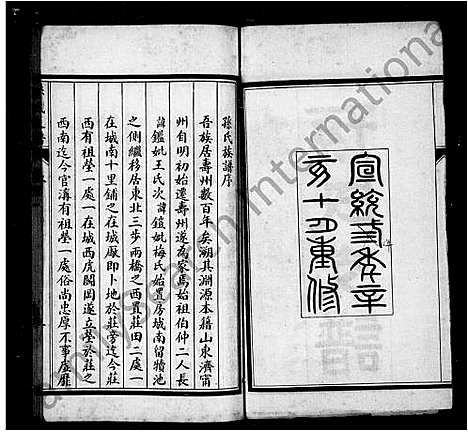 宣統弎年辛
亥十月重修
孫氏族譜序
吾族居壽州數百年矣溯其淵源本籍山東濟甯
州自明初始遷壽州遂為家焉始祖伯仲二人長
諱鑑妣王氏次諱鎧妣梅氏始置房城南留犢池
之側繼移居東北三步兩橋之西置莊田二處一
在城南十里鋪之在城廒即卜地於莊旁迄今莊
西有祖塋一處一在城西虎闘岡遂立塋於莊之
西南迄今官溝有祖塋一處俗尚忠厚不事虛靡